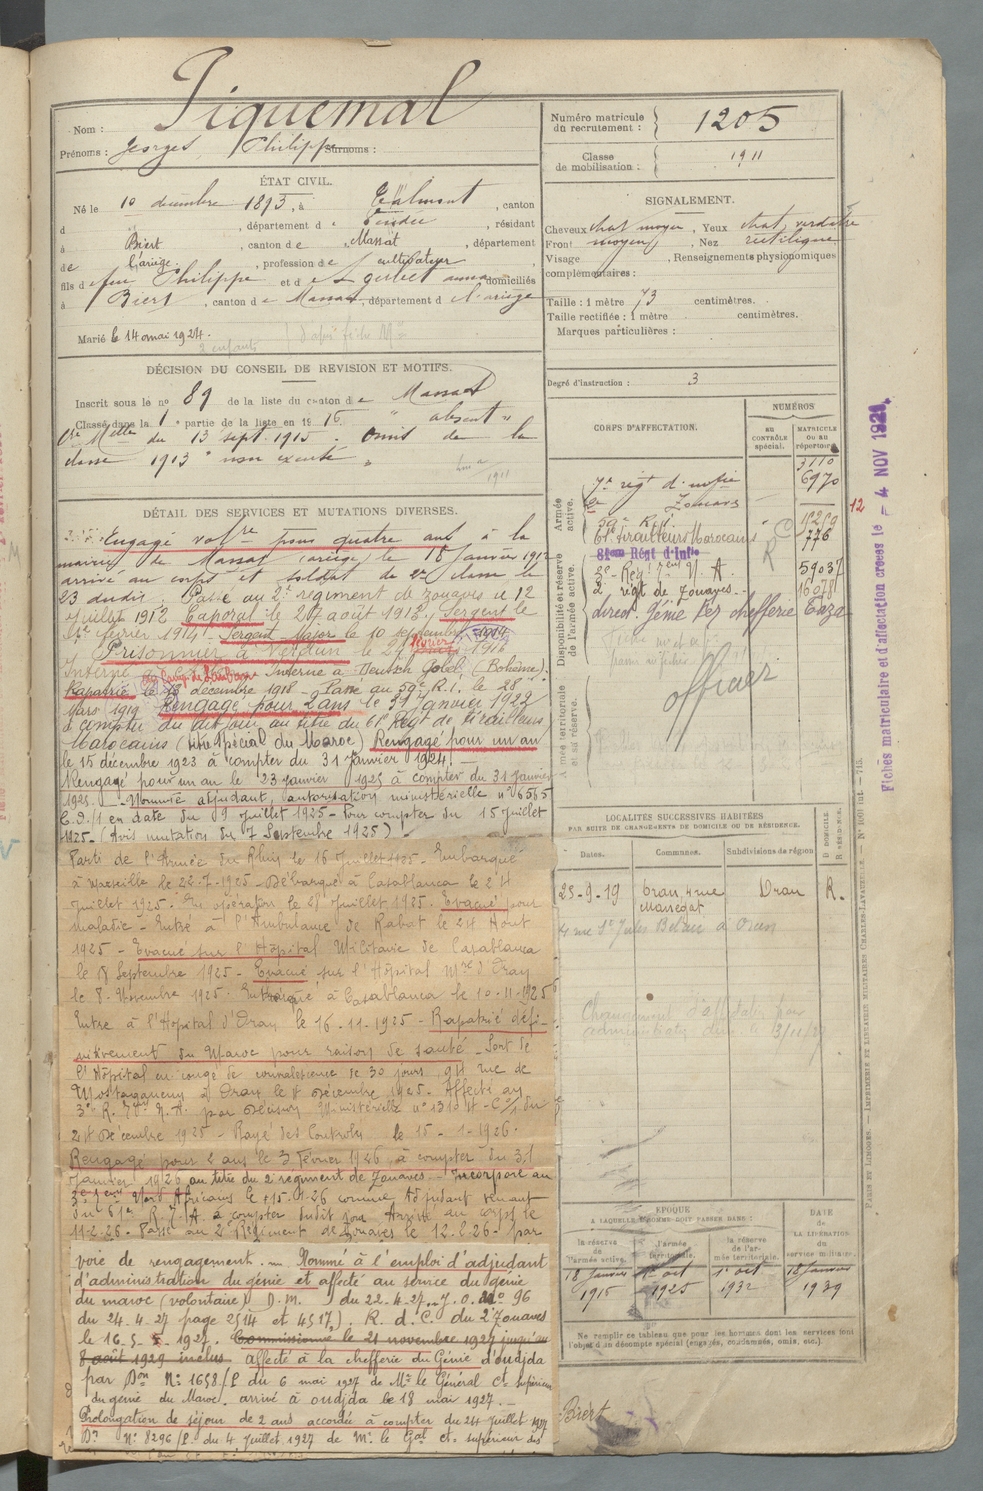 Piquemal
Nom :
Prénoms : Georges Philippe Surnoms :
Numéro matricule du recrutement : 1205
Classe de mobilisation : 1911
ÉTAT CIVIL.
Né le 10 décembre 1893, à Talmont, canton
d , département d e Vendée, résidant
à Biert, canton d e Massat, département
d e l'ariège, profession d e cultivateur
fils d e feu Philippe et d e Loubet anna domiciliés
à Biert, canton d e Massat, département d e l'ariège
Marié le 14 mai 1924.
2 enfants
SIGNALEMENT.
Cheveux chat moyen, Yeux chat verdâtre
Front moyen, Nez rectiligne
Visage , Renseignements physionomiques
complémentaires :
Taille : 1 mètre 73 centimètres.
Taille rectifiée : 1 mètre centimètres.
Marques particulières :
Degré d'instruction : 3
DÉCISION DU CONSEIL DE REVISION ET MOTIFS.
Inscrit sous le no 89 de la liste du canton d e Massat
Classé dans la 1e partie de la liste en 1916 " absent "
du 13 sept. 1915. Omis de la
classe 1913 " non excusé "
DÉTAIL DES SERVICES ET MUTATIONS DIVERSES.
Engagé volre pour quatre ans à la
mairie de Massat (ariège) le 18 Janvier 1912
arrivé au corps et soldat de 2e classe le
23 dudit. Passé au 2e régiment de zouaves le 12
Juillet 1912 Caporal le 24 août 1912, Sergent le
février 1914. Sergent Major le 10 septembre 1914
Prisonnier à Verdun le 24 février 1916
Interné au camp de Interné à Deutsch Gabel (Bohême).
Rapatrié le 18 décembre 1918 - Passé au 39e R.I. le 28
Mars 1919 Rengagé pour 2 ans le 31 Janvier 1922
à compter du dit jour au titre du 61e Regt de tirailleurs
Marocains (titre spécial du Maroc) Rengagé pour un an
le 15 décembre 1923 à compter du 31 Janvier 1924. -
Rengagé pour un an le 23 janvier 1925 à compter du 31 janvier
1925. - Nommé adjudant, autorisation ministérielle no 6565
E.O/1 en date du 9 Juillet 1925 - Pour compter du 15 Juillet
1925 - (Avis mutation du 7 Septembre 1925)
Parti de l'Armée du Rhin le 16 Juillet 1925 - Embarqué
à Marseille le 22-7-1925 - Débarqué à Casablanca le 24
Juillet 1925. En opération le 28 Juillet 1925. Evacué pour
maladie - Entré à l'Ambulance de Rabat le 24 Août
1925 - Evacué sur l'Hôpital Militaire de Casablanca
le 8 Septembre 1925 - Evacué sur l'Hôpital Mre d'Oran
le 8 Novembre 1925. Embarqué à Casablanca le 10-11-1925
Entré à l'Hôpital d'Oran le 16-11-1925 - Rapatrié défi-
nitivement du Maroc pour raison de santé - Sort de
l'Hôpital en congé de convalescence de 30 jours, 94 rue de
Mostaganem à Oran le 8 Décembre 1925. Affecté au
3e R. Tirs N.A. par Décision Ministérielle no 1310 4 - C/1 du
24 Décembre 1925 - Rayé des Contrôles le 15-1-1926.
Rengagé pour 2 ans le 3 Février 1926 à compter du 31
Janvier 1926 au titre du 2 régiment de Zouaves. - Incorporé au
Nord Africains le 15.01.26 comme Adjudant venant
du 61e R.T.M. à compter dudit jour. Arrivé au corps le
11-2-26. Passé au 2e Régiment de Zouaves le 12.2.26 par
voie de rengagement. - Nommé à l'emploi d'adjudant
d'administration du génie et affecté au service du génie
du maroc (volontaire) D.M. du 22-4-27. J.O. no 96
du 24.4.27 page 2514 et 4517). R.d.C. du 2e Zouaves
le 16.5.1927. Commissionné le 21 novembre 1927 jusqu'au
8 août 1929 inclus affecté à la chefferie du Génie d'oudjda
par Don No 1658/P du 6 mai 1927 de Mr le Général Ct Supérieur
du génie du Maroc. arrivé à oudjda le 18 mai 1927. -
Prolongation de séjour de 2 ans accordée à compter du 24 juillet 1927
Don No 8296/P. du 4 Juillet 1927 de Mr. le Gal Ct supérieur du
CORPS D'AFFECTATION.
NUMÉROS
AU CONTRÔLE spécial.
MATRICULE OU AU répertoire.
Armée active.
7e régt d'infie 3110
2e Zouaves 6970
39e R.I. 10259
61e tirailleurs Marocains 776
Disponibilité et réserve de l'armée active.
8ème Régt d'Infie
3e Regt Tirs N.A. 59037
2e régt de Zouaves 16078
direct. Génie Fez chefferie Taza
Armée territoriale et sa réserve.
officier
12
Fiches matriculaire et d'affectation créées le - 4 NOV 1929
LOCALITÉS SUCCESSIVES HABITÉES
PAR SUITE DE CHANGEMENTS DE DOMICILE OU DE RÉSIDENCE.
Dates.
Communes.
Subdivisions de région
D DOMICILE. R RÉSIDENCE.
25-9-19 Oran, 4 rue Massegat Oran R.
Changement d'affectation pour
ÉPOQUE
A LAQUELLE L'HOMME DOIT PASSER DANS :
la réserve de l'armée active.
l'armée territoriale.
la réserve de l'armée territoriale.
DATE de LA LIBÉRATION du service militaire.
18 Janvier 1915
1er oct 1925
1er oct 1932
18 Janvier 1939
Ne remplir ce tableau que pour les hommes dont les services font
l'objet d'un décompte spécial (engagés, condamnés, omis, etc.).
Biert
PARIS ET LIMOGES. — IMPRIMERIE ET LIBRAIRIE MILITAIRES CHARLES-LAVAUZELLE.